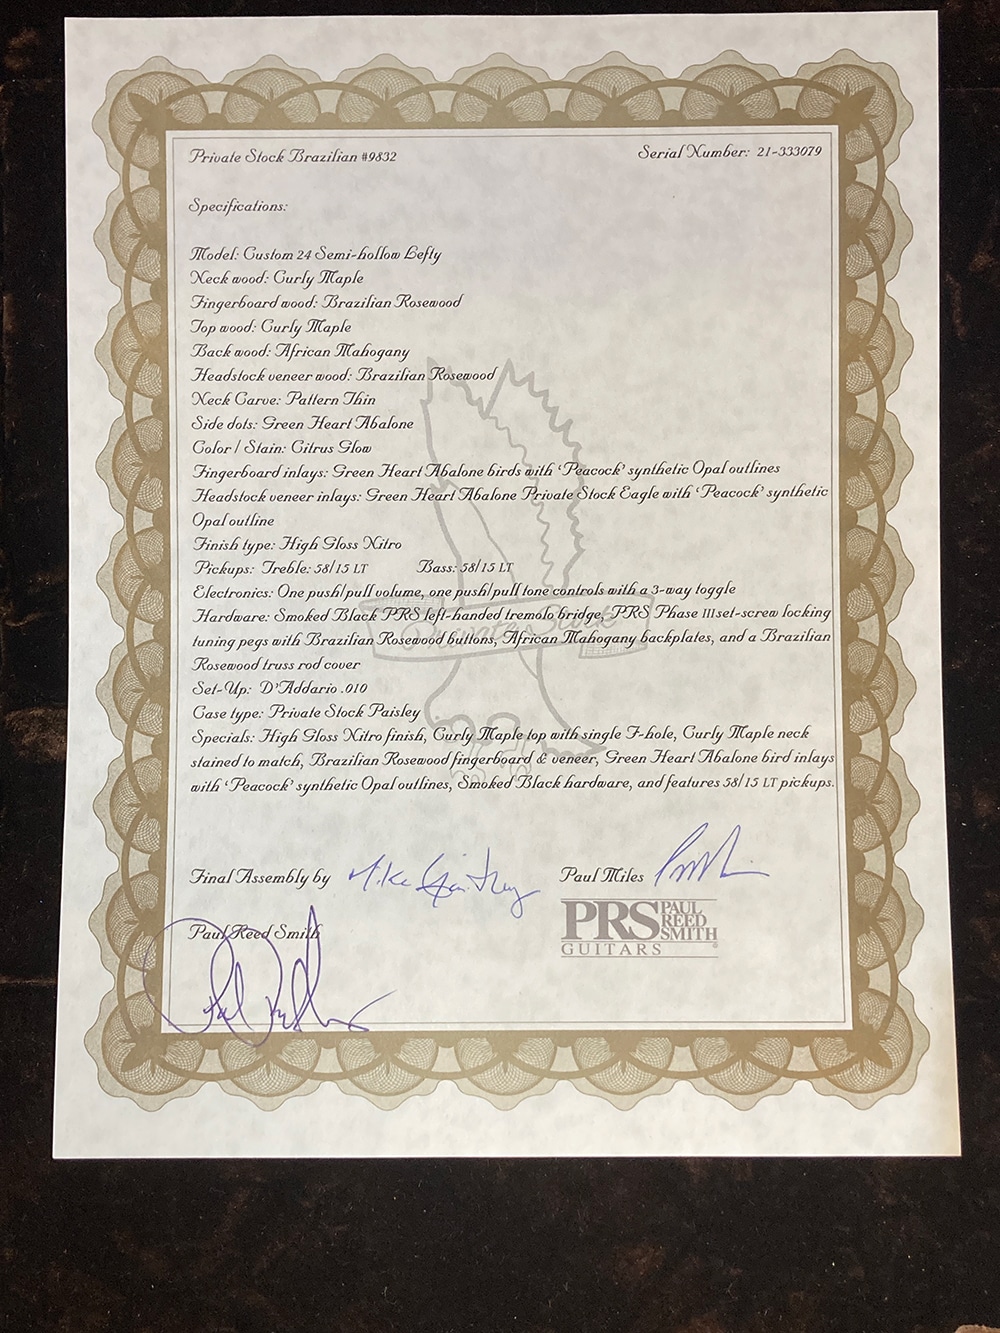 Private Stock Brazilian #9832 Serial Number: 21-333079
Specifications:
Model: Custom 24 Semi-hollow Lefty
Neck wood: Curly Maple
Fingerboard wood: Brazilian Rosewood
Top wood: Curly Maple
Back wood: African Mahogany
Headstock veneer wood: Brazilian Rosewood
Neck Carve: Pattern Thin
Side dots: Green Heart Abalone
Color / Stain: Citrus Glow
Fingerboard inlays: Green Heart Abalone birds with 'Peacock' synthetic Opal outlines
Headstock veneer inlays: Green Heart Abalone Private Stock Eagle with 'Peacock' synthetic
Opal outline
Finish type: High Gloss Nitro
Pickups: Treble: 58/15 LT Bass: 58/15 LT
Electronics: One push/pull volume, one push/pull tone controls with a 3-way toggle
Hardware: Smoked Black PRS left-handed tremolo bridge, PRS Phase III set-screw locking
tuning pegs with Brazilian Rosewood buttons, African Mahogany backplates, and a Brazilian
Rosewood truss rod cover
Set-Up: D'Addario .010
Case type: Private Stock Paisley
Specials: High Gloss Nitro finish, Curly Maple top with single F-hole, Curly Maple neck
stained to match, Brazilian Rosewood fingerboard & veneer, Green Heart Abalone bird inlays
with 'Peacock' synthetic Opal outlines, Smoked Black hardware, and features 58/15 LT pickups.
Final Assembly by Mike Paul Miles
Paul Reed Smith
PRS PAUL REED SMITH
GUITARS
Private Stock